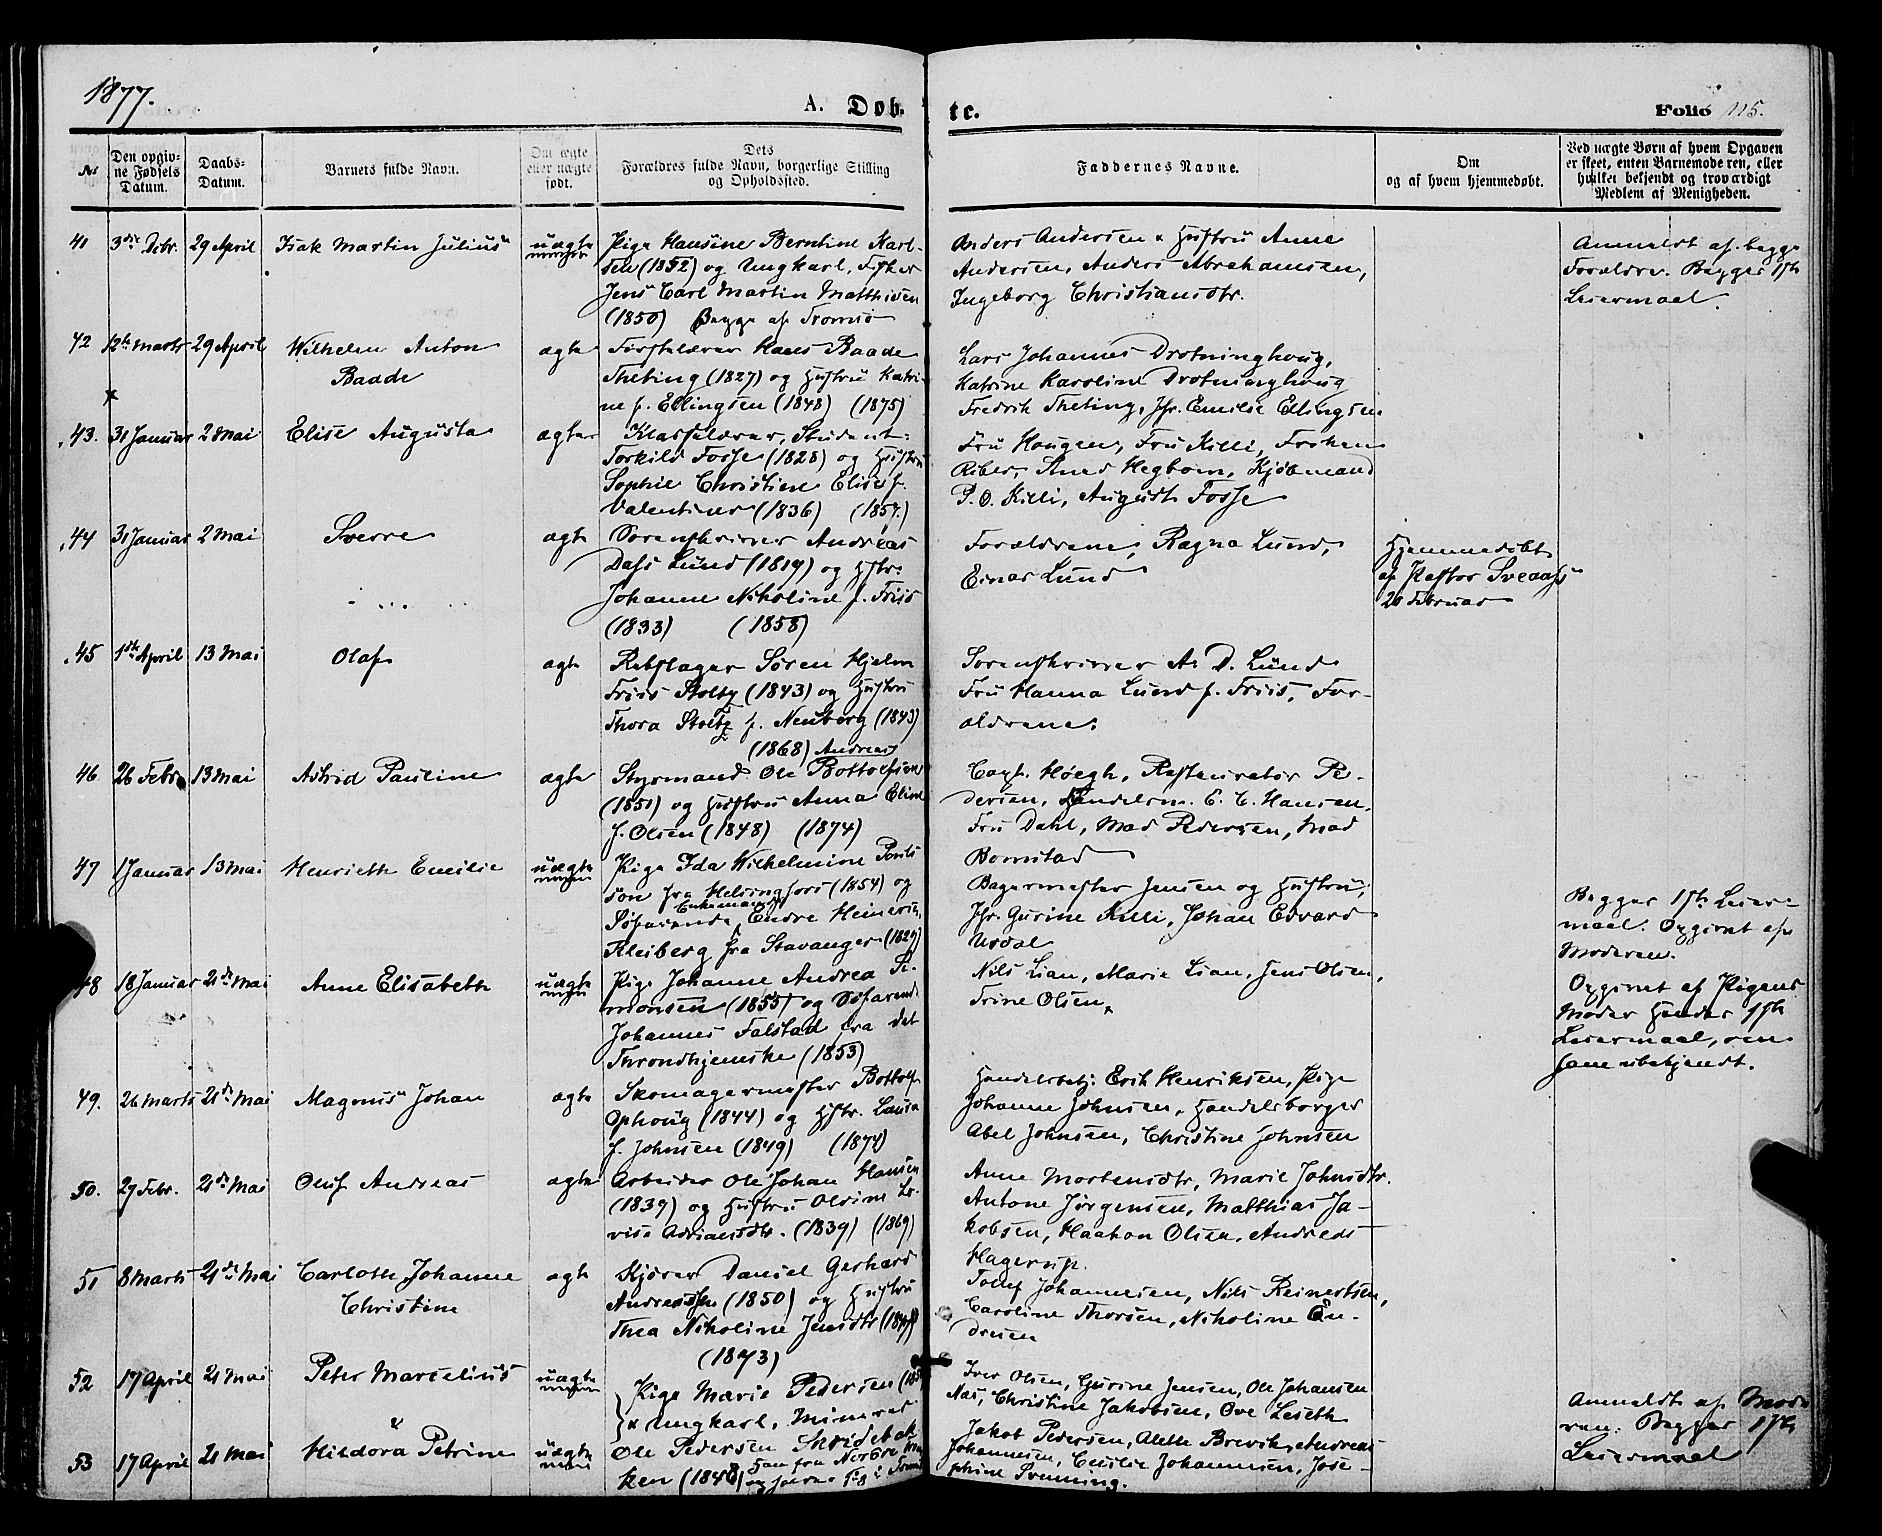 1877.
A. Døb.
te.
Folio 115.
No
Den opgiv-
ne Fødsels
Datum.
Daabs-
Datum.
Barnets fulde Navn.
Om ægte
eller uægte
født.
Dets
Forældres fulde Navn, borgerlige Stilling
og Opholdssted.
Faddernes Navne.
Om
og af hvem hjemmedøbt.
Ved uægte Børn af hvem Opgaven
er skeet, enten Barnemoderen, eller
hvilket bekjendt og troværdigt
Medlem af Menigheden.
41 3die Debr. 29 April Isak Martin Julius uægte
Pige Hansine Berntine Karl-
sen (1852) og Ungkarl, Fisker
Jens Carl Martin Matthisen
(1850) Begge af Tromsø
Anders Andersen & Hustru Anne
Andersen, Anders Abrahamsen,
Ingeborg Christiansdtr.
Anmeldt af begge
Forældre. Begges 1ste
Leiermaal.
42 12te Marts 29 April Wilhelm Anton
Baade
ægte
Førstelærer Hans Baade
Theting (1827) og Hustru Katri-
ne f. Ellingsen (1848) (1875)
Lars Johannes Drotninghoug,
Katrine Karoline Drotninghoug
Fredrik Theting, Jfr. Emilie Ellingsen
43. 31 Januar 2 Mai Elise Augusta ægte
Klasselærer, Student
Torkild Fosse (1828) og Hustru
Sophie Christine Elise f.
Valentiner (1836) (1857.)
Fru Hougen, Fru Killi, Frøken
Riber, Hegbom, Kjøbmand
P. O. Killi, August Fosse
44 31 Januar 2 Mai Sverre ægte
Sorenskriver Andreas
Dass Lund (1819) og Hstr.
Johanne Nikoline f. Friis
(1833) (1858)
Forældrene, Ragna Lund,
Einar Lund
Hjemmedøbt
af Pastor Sveaas
20 Februar
45 1ste April 13 Mai Olaf ægte
Rebslager Søren Hjelm
Friis Stoltz (1843) og Hustru
Thora Stoltz f. Neuberg (1843)
(1868)
Sorenskriver A. D. Lund
Fru Hanna Lund f. Friis, For-
ældrene.
46. 26 Febr. 13 Mai Astrid Pauline ægte
Andreas
Styrmand Ole Bottolfsen
(1851) og Hustru Anna Eline
f. Olsen (1848) (1874)
Capt. Høegh, Restauratør Pe-
dersen, Handelsm. C. C. Hansen,
Fru Dahl, Mad Pedersen, Mad
Bomstad
47 1 Januar 13 Mai Henriette Emilie uægte
Pige Ida Wilhelmine Pouls
son fra Helsingfors (1854) og
Enkemand
Søfarende, Endre Heinersen
Kleiberg fra Stavanger (1829)
Bagermester Jensen og Hustru,
Jfr. Gurine Killi, Johan Edvard
Urdal
Begges 1ste Leier-
maal. Opgivet af
Moderen.
48 18 Januar 21de Mai Anne Elisabeth uægte
Pige Johanne Andrea Si-
monsen (1855) og Søfarende
Johannes Falstad fra det
Throndhjemske (1853)
Nils Lian, Marie Lian, Jens Olsen,
Trine Olsen,
Opgivet af Pigens
Moder Hendes 1ste
Leiermaal,
ubekjendt.
49. 26 Marts 21de Mai Magnus Johan ægte
Skomagermester Bottolf
Ophoug (1844) og Hstr. Laura
f. Johnsen (1849) (1874)
Handelsbetj. Erik Henriksen, Pige
Johanne Johnsen, Handelsborger
Abel Johnsen, Christine Johnsen
50. 27 Febr. 21de Mai Oluf Andreas ægte
Arbeider Ole Johan Hansen
(1839) og Hustru Oldine Lo-
vise Adriansdtr. (1839) (1869)
Anne Mortensdtr, Marie Johnsdtr.
Antone Jørgensen, Matthias Ja-
kobsen, Haakon Olsen, Andreas
Hagerup.
51 8 Marts 21de Mai Carlotte Johanne
Christine
ægte
Kjører Daniel Gerhard
Andreassen (1850) og Hustru
Thea Nikoline Jensdtr
(1873)
Johannesen, Nils Reinertsen,
Caroline Thorsen, Nikoline An-
dresen
52 17 April 21 Mai Peter Marselius uægte
&
53 17 April 21 Mai Hildora Petrine uægte
Pige Marie Pedersen
& Ungkarl, Minerer
Ole Pedersen Skridebak
ken (1848)
Iver Olsen, Gurine Jensen, Ole Johansen
Næs, Christine Jakobsen, Ove Leseth
Jakob Pedersen, Alette Brevik, Andreas
Johannesen, Emilie Johannesen, Jose-
phine Svenning.
Anmeldt af Mode
ren. Begges 1ste
Leiermaal